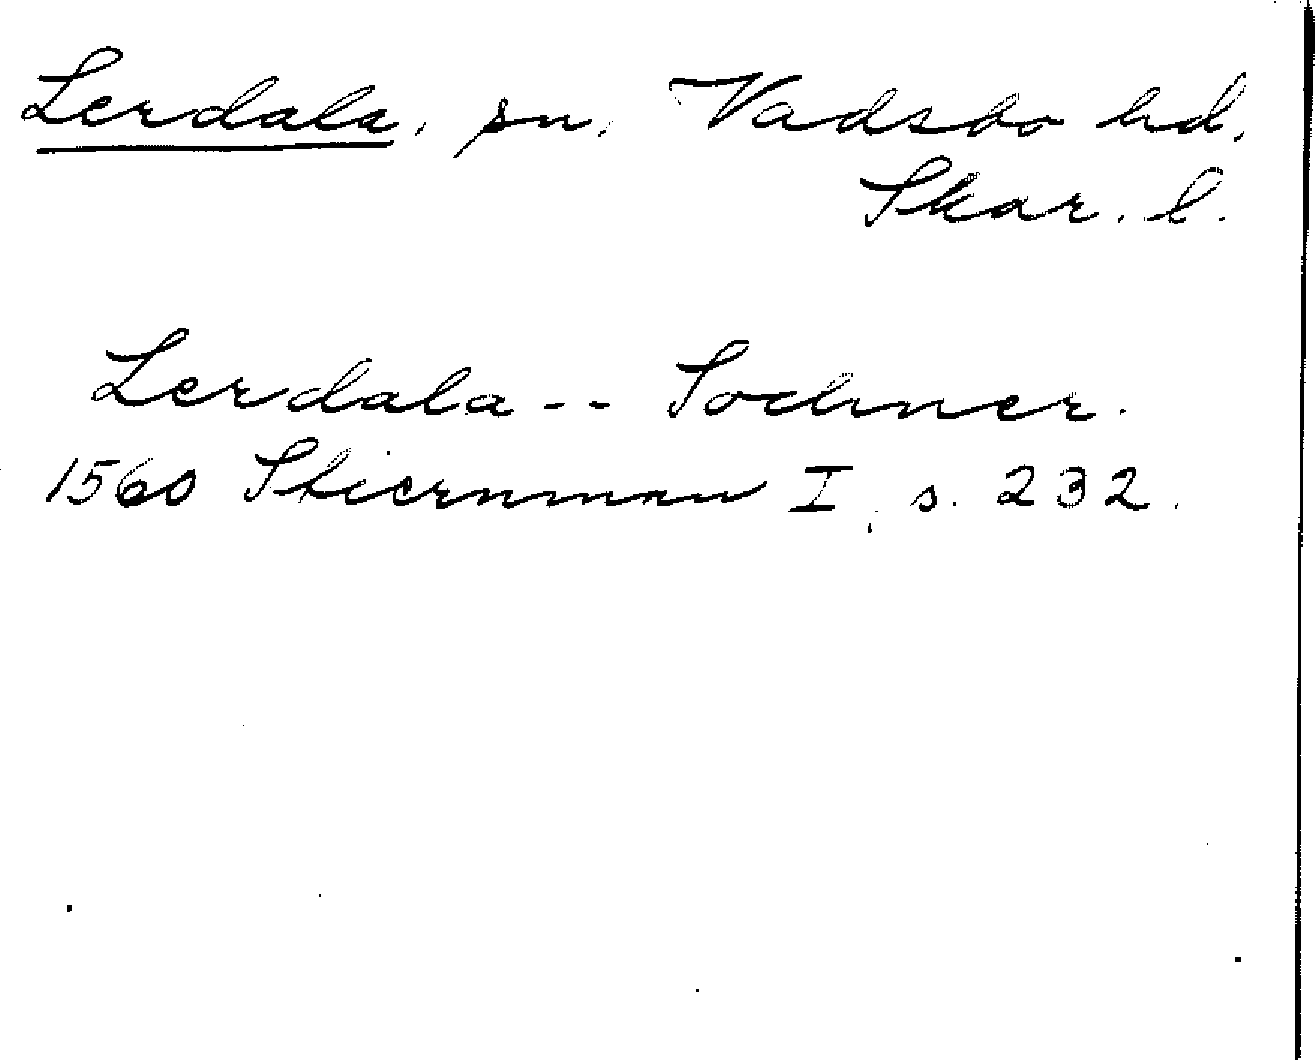 Lerdala, sn, Vadsbo hd,
Skar. l.
Lerdala -- Sochner.
1560 Stiernman I, s. 232.